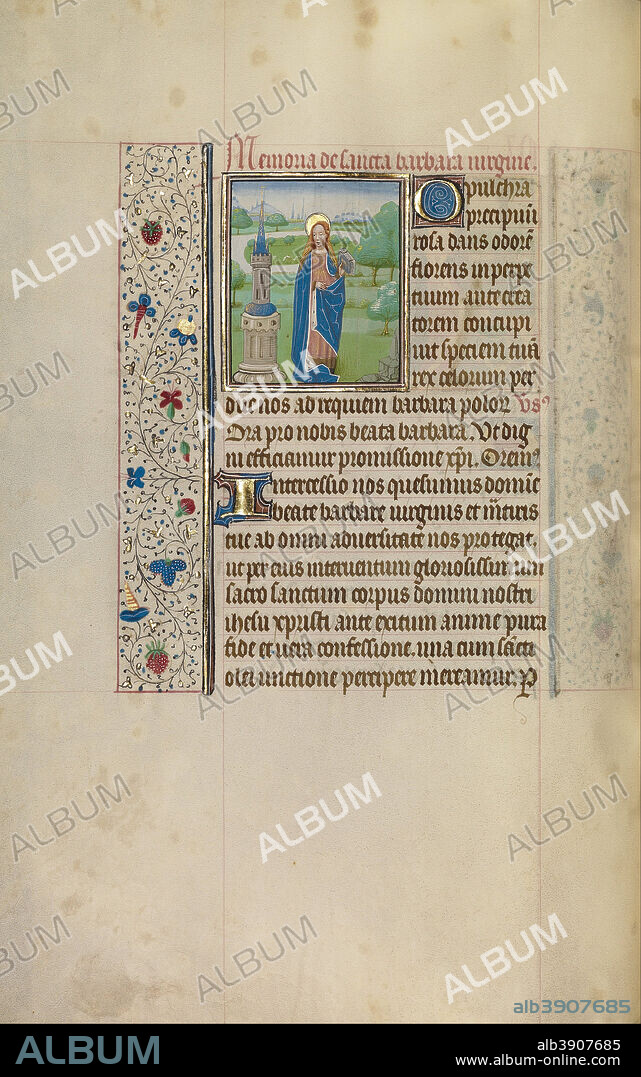 Memoria de sancta barbara uirgine.
O pulchra
precipuu
rosa dans odore
florens in perpe
tuum ante crea
torem concupi
uit speciem tua
rex celorum per
duc nos ad requiem barbara polor Vs
Ora pro nobis beata barbara. Vt dig
ni efficiamur promissione xpi. Orem
Intercessio nos quesumus domine
beate barbare uirginis et mris
tue ab omni aduersitate nos protegat.
ut per eius interuentum gloriosissimum
sacrosanctum corpus domini nostri
ihesu xpristi ante exitum anime pura
fide et uera confessione. una cum sacra
olei unctione percipere mereamur. P
alb3907685
ALBUM
alb3907685
www.album-online.com